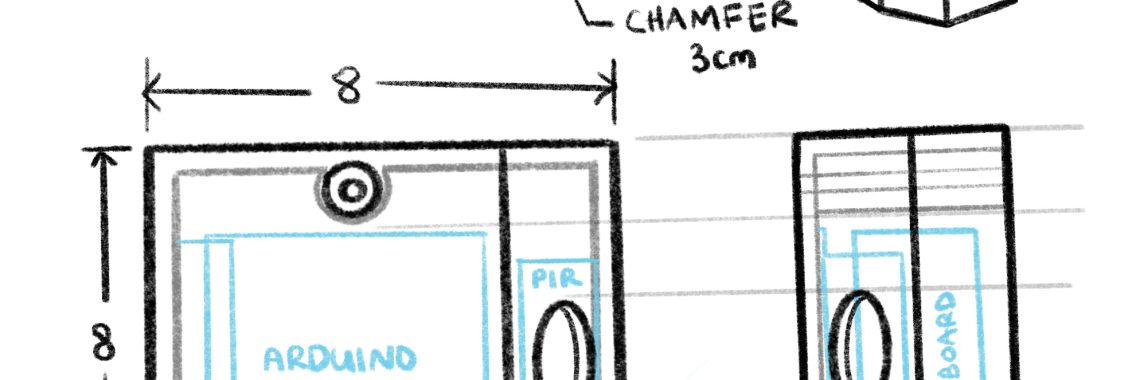 CHAMFER
3cm
8
PIR
8
ARDUINO
BOARD